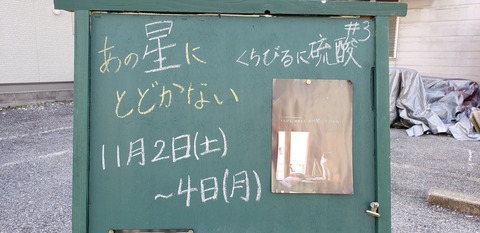 くちびるに硫酸 #3
あの星に
とどかない
11月2日(土)
～4日(月)